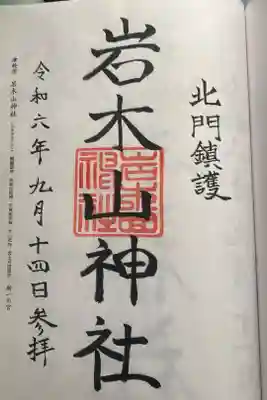 北門鎮護
岩木山神社
令和六年九月十四日参拝
津軽国 岩木山神社